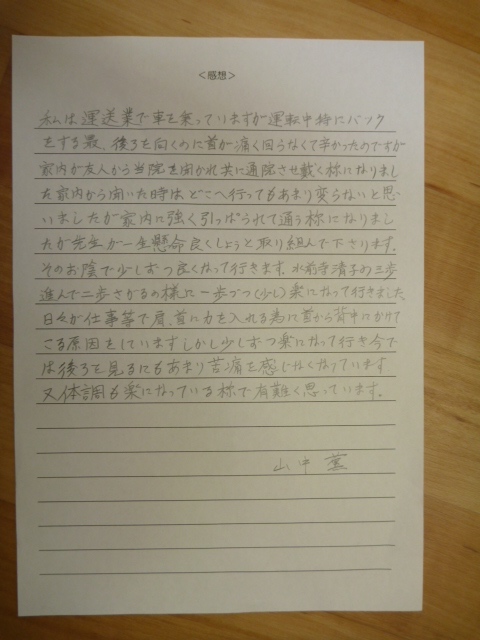 <感想>
私は運送業で車を乗っていますが運転中特にバック
をする最、後ろを向くのに首が痛く回らなくて辛かったのですが
家内が友人から当院を聞かれ共に通院させ戴く様になりまし
た家内から聞いた時はどこへ行ってもあまり変らないと思
いましたが家内に強く引っぱられて通う様になりまし
たが先生が一生懸命良くしようと取り組んで下さります。
そのお陰で少しずつ良くなって行きます。水前寺清子の三歩
進んで二歩さがるの様に一歩づつ(少し)楽になって行きました。
日々が仕事等で肩、首に力を入れる為に首から背中にかけて
こる原因をしていますしかし少しずつ楽になって行き今で
は後ろを見るにもあまり苦痛を感じなくなっています
又体調も楽になっている様で有難く思っています。
山中 薫